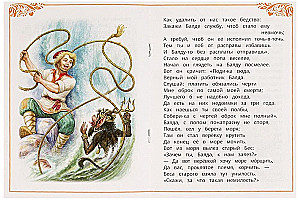 Как удалить от нас такое бедство:
Закажи Балде службу, чтоб стало ему
невмочь;
А требуй, чтоб он её исполнил точь-в-точь.
Тем ты и лоб от расправы избавишь
И Балду-то без расплаты отправишь».
Стало на сердце попа веселее,
Начал он глядеть на Балду посмелее.
Вот он кричит: «Поди-ка сюда,
Верный мой работник Балда.
Слушай: платить обязались черти
Мне оброк по самой моей смерти;
Лучшего б не надобно дохода,
Да есть на них недоимки за три года.
Как наешься ты своей полбы,
Собери-ка с чертей оброк мне полный».
Балда, с попом понапрасну не споря,
Пошёл, сел у берега моря;
Там он стал верёвку крутить
Да конец её в море мочить.
Вот из моря вылез старый Бес:
«Зачем ты, Балда, к нам залез?»
— Да вот верёвкой хочу море морщить,
Да вас, проклятое племя, корчить. —
Беса старого взяла тут унылость.
«Скажи, за что такая немилость?»